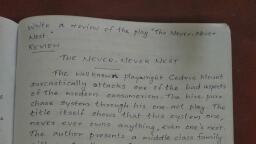 Write a review of the play 'The Never, Never
Nest.'
REVIEW
THE NEVER, NEVER NEST
The well known playwright Cedric Mount
sarcastically attacks one of the bad aspects
of the modern consumerism. The hire pur-
chase system through his one-act play. The
title itself shows that this system one,
never ever owns anything, even one's nest.
The author presents a middle class family